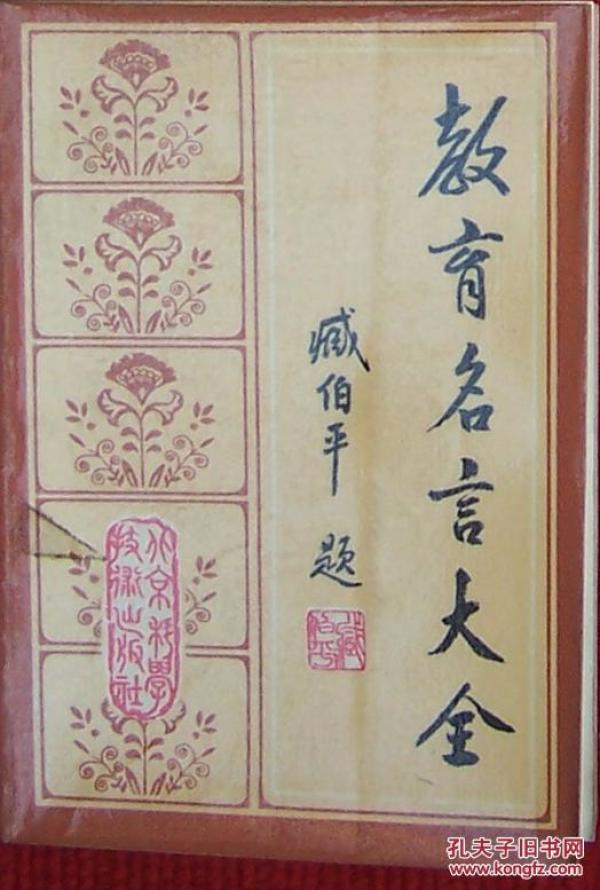 教育名言大全
臧伯平 题
臧伯平
北京科学
技术出版社
孔夫子旧书网
www.kongfz.com